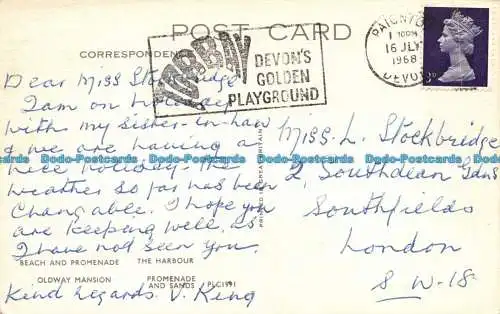 POST CARD
CORRESPONDENCE
TORBAY
DEVON'S
GOLDEN
PLAYGROUND
PAIGNTON
16 JLY
1968
DEVON
Dear Miss Stockbridge
I am on holiday
with my sister-in-law
& we are having a
nice holiday. The
weather so far has been
changable. I hope you
are keeping well, as
I have not seen you.
Kind regards. V. King
Miss. L. Stockbridge
2, Southdean Gdns
Southfields
London
S. W. 18.
PRINTED IN GREAT BRITAIN
BEACH AND PROMENADE THE HARBOUR
OLDWAY MANSION PROMENADE AND SANDS PLC1991
Dodo-Postcards Dodo-Postcards Dodo-Postcards Dodo-Postcards Dodo-Postcards Dodo-Postcards